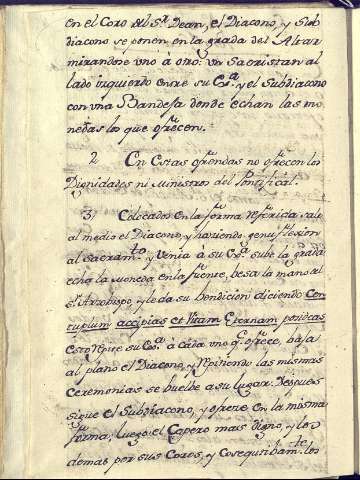 en el Coro del Sr. Dean, el Diacono, y Sub
diacono se ponen en la grada del Altar
mirandose uno à otro: un Sacristan al
lado izquierdo entre su Exa. y el Subdiacono
con una Bandeja donde echan las mo
nedas los que ofrecen.
2 En estas ofrendas no ofrecen los
Dignidades ni Ministros del Pontifical.
3 Colocados en la forma referida sale
al medio el Diacono, y haviendo genuflexion
al Sacramto. y venia à su Exa. sube la grada
echa la moneda en la fuente, besa la mano al
Sr. Arzobispo, y le da su bendicion diciendo Cen
tuplum accipias et Vitam Eternam posideas
esto repite su Exa. à cada uno q. ofrece, baja
al plano el Diacono, y repitiendo las mismas
ceremonias se buelbe a su lugar. Despues
sigue el Subdiacono, y ofrece en la misma
forma, luego el Capero mas digno, y los
demas por sus Coros, y los